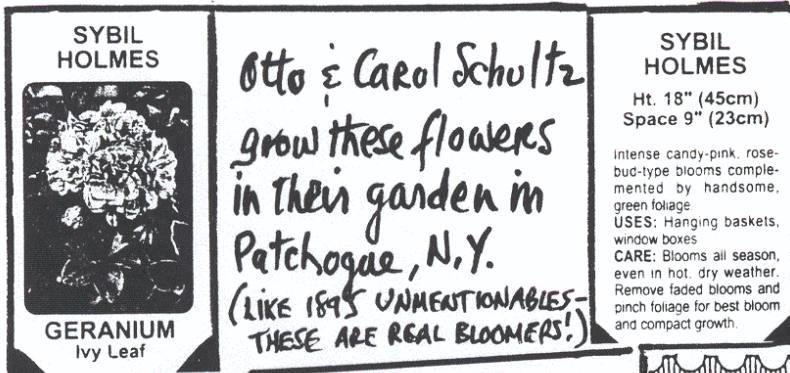 SYBIL
HOLMES
GERANIUM
Ivy Leaf
Otto & Carol Schultz
grow these flowers
in their garden in
Patchogue, N.Y.
(LIKE 1895 UNMENTIONABLES-
THESE ARE REAL BLOOMERS!)
SYBIL
HOLMES
Ht. 18" (45cm)
Space 9" (23cm)
Intense candy-pink, rose-
bud-type blooms comple-
mented by handsome,
green foliage
USES: Hanging baskets,
window boxes
CARE: Blooms all season,
even in hot, dry weather.
Remove faded blooms and
pinch foliage for best bloom
and compact growth.